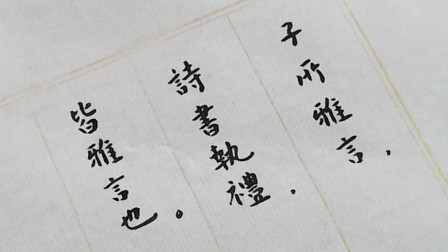 子所雅言，
詩書執禮，
皆雅言也。